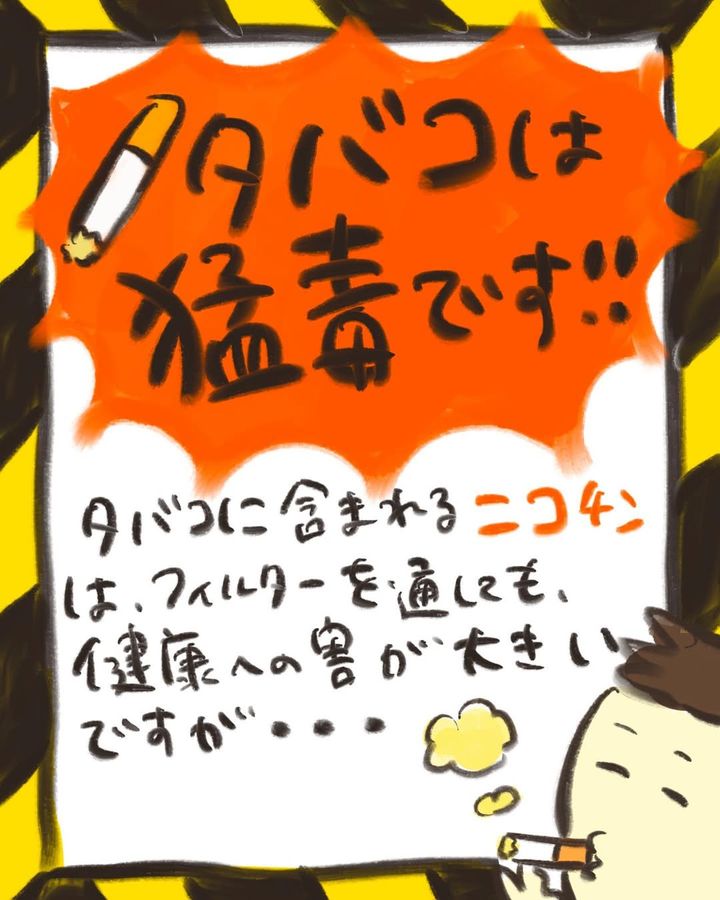 タバコは
猛毒です!!
タバコに含まれるニコチン
は、フィルターを通しても、
健康への害が大きい
ですが・・・